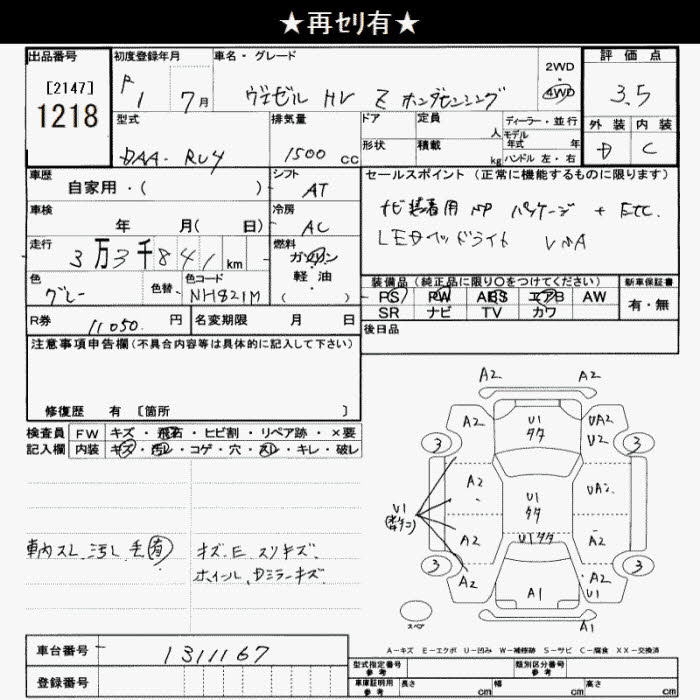 ★再ｾﾘ有★
出品番号 初度登録年月 車名・グレード 評価点
[2147]
1218
R 1 7月 ヴェゼル HV Z ホンダセンシング
2WD・4WD
3.5
外装 内装
D C
型式 排気量 ドア 定員 人 ディーラー・並行
モデル年式 年
DAA-RU4 1500 cc 形状 積載 kg ハンドル 左・右
車歴 シフト セールスポイント (正常に機能するものに限ります)
自家用・( ) AT
車検 冷房 ナビ装着用 SP パッケージ + ETC.
年 月( 日) AC LEDヘッドライト
走行 燃料
3万3千841km ガソリン・軽油( )
色 色替 色コード 装備品 (純正品に限り○をつけてください) 新車保証書
グレー NH821M PS PW ABS エアB AW 有・無
SR ナビ TV カワ
R券 11050 円 名変期限 月 日 後日品
注意事項申告欄(不具合内容等は具体的に記入して下さい)
修復歴 有 [箇所 ]
検査員記入欄 FW キズ・飛石・ヒビ割・リペア跡・×要
内装 キズ・汚レ・コゲ・穴・スレ・キレ・破レ
A2 A2
A2 U1 タタ UA2 U2
3 3
A2 U1 タタ UA2
U1
A2 U1タタ A2
3 3
A2 A1 A2 U1
A1
スペア
車内スレ、汚レ 毛(有) キズ.E スリキズ.
ホイール、Dミラーキズ
A－キズ E－エクボ U－凹み W－補修跡 S－サビ C－腐食 XX－交換済
車台番号 1311167
型式指定番号 参考 類別区分番号 参考
登録番号 車庫証明用 参考 長さ cm 幅 cm 高さ cm